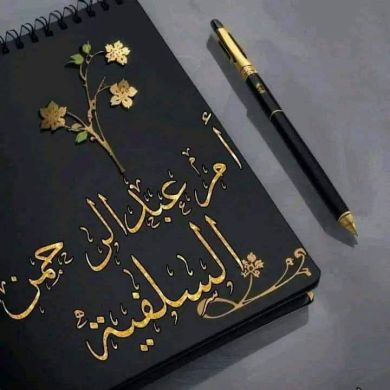 أم عبدالرحمن
السلفية